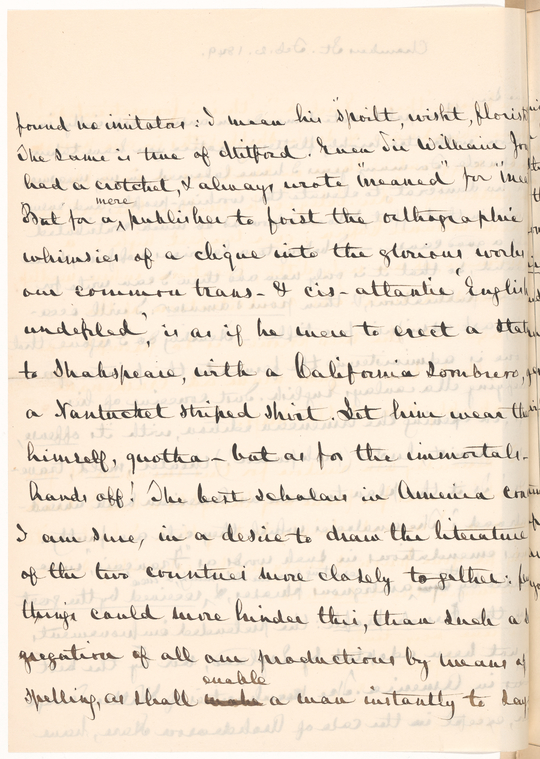 found no imitators: I mean his "spoilt, wisht, florist
The same is true of Mitford. Even Sir William Jon
had a crotchet, & always wrote "meaned" for "mea
But for a mere publisher to foist the orthographic
whimsies of a clique into the glorious works
our common trans- & cis-atlantic "English
undefiled", is as if he were to erect a statu
to Shakspeare, with a California Sombrero,
a Nantucket striped shirt. Let him wear th
himself, quotha - but as for the immortals -
hands off! The best scholars in America con
I am sure, in a desire to draw the literature
of the two countries more closely together: fe
things could more hinder this, than such a s
gregation of all our productions by means of
spelling, as shall enable a man instantly to say